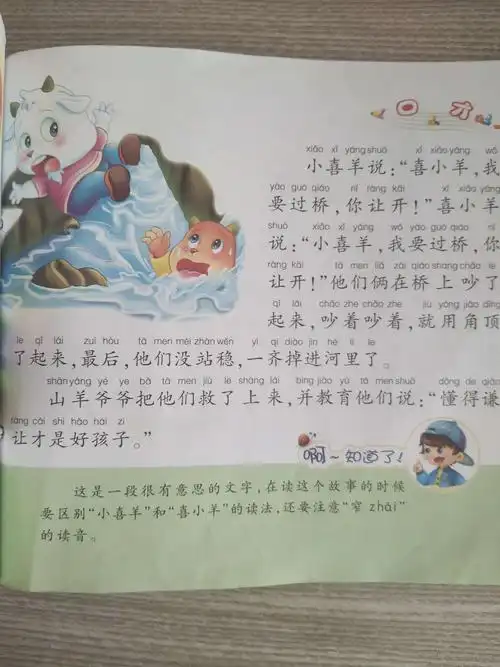 口才
xiǎo xǐ yáng shuō xǐ xiǎo yáng wǒ
小喜羊说：“喜小羊，我
yào guò qiáo nǐ ràng kāi xǐ xiǎo yáng
要过桥，你让开！”喜小羊
shuō xiǎo xǐ yáng wǒ yào guò qiáo nǐ
说：“小喜羊，我要过桥，你
ràng kāi tā men liǎ zài qiáo shang chǎo le
让开！”他们俩在桥上吵了
qǐ lái chǎo zhe chǎo zhe jiù yòng jiǎo dǐng
起来，吵着吵着，就用角顶
le qǐ lái zuì hòu tā men méi zhàn wěn yì qí diào jìn hé lǐ le
了起来，最后，他们没站稳，一齐掉进河里了。
shān yáng yé ye bǎ tā men jiù le shàng lái bìng jiào yù tā men shuō dǒng de qiān
山羊爷爷把他们救了上来，并教育他们说：“懂得谦
ràng cái shì hǎo hái zi
让才是好孩子。”
啊~知道了！
这是一段很有意思的文字，在读这个故事的时候
要区别“小喜羊”和“喜小羊”的读法，还要注意“窄 zhǎi”
的读音。